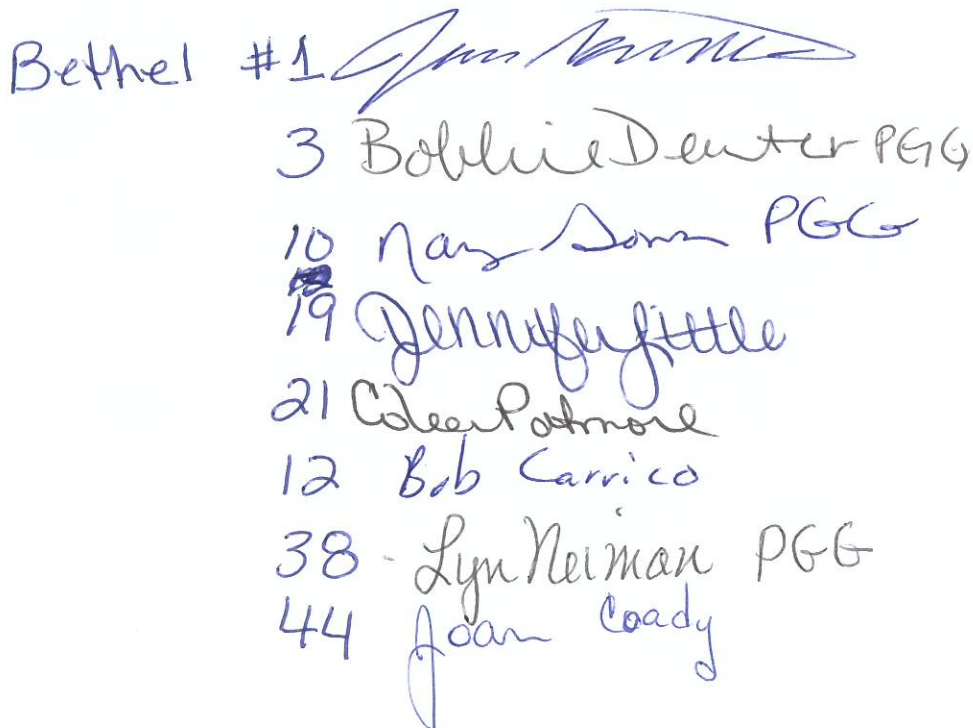 Bethel #1
3 Bobbie Deuter PGG
10 PGG
19 Jennifer Little
21 Patmore
12 Bob Carrico
38 - Lyn Neiman PGG
44 Joan Coady